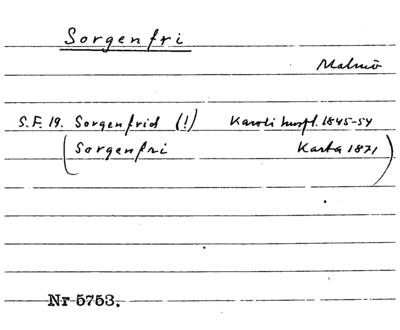 Sorgenfri
Malmö
S.F. 19. Sorgenfrid (!) Karoli husf. 1845-54
(Sorgenfri Karta 1871)
Nr 5753.